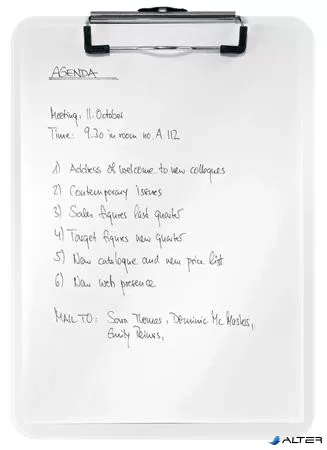 AGENDA
Meeting: 11. October
Time: 9.30 in room no. A 112
1) Address of welcome to new colleques
2) Contemporary issues
3) Sales figures last quarter
4) Target figures new quarter
5) New catalogue and new price list
6) New web presence
MAIL TO: Sara Thomas, Dominic Mc
Emily
ALTER